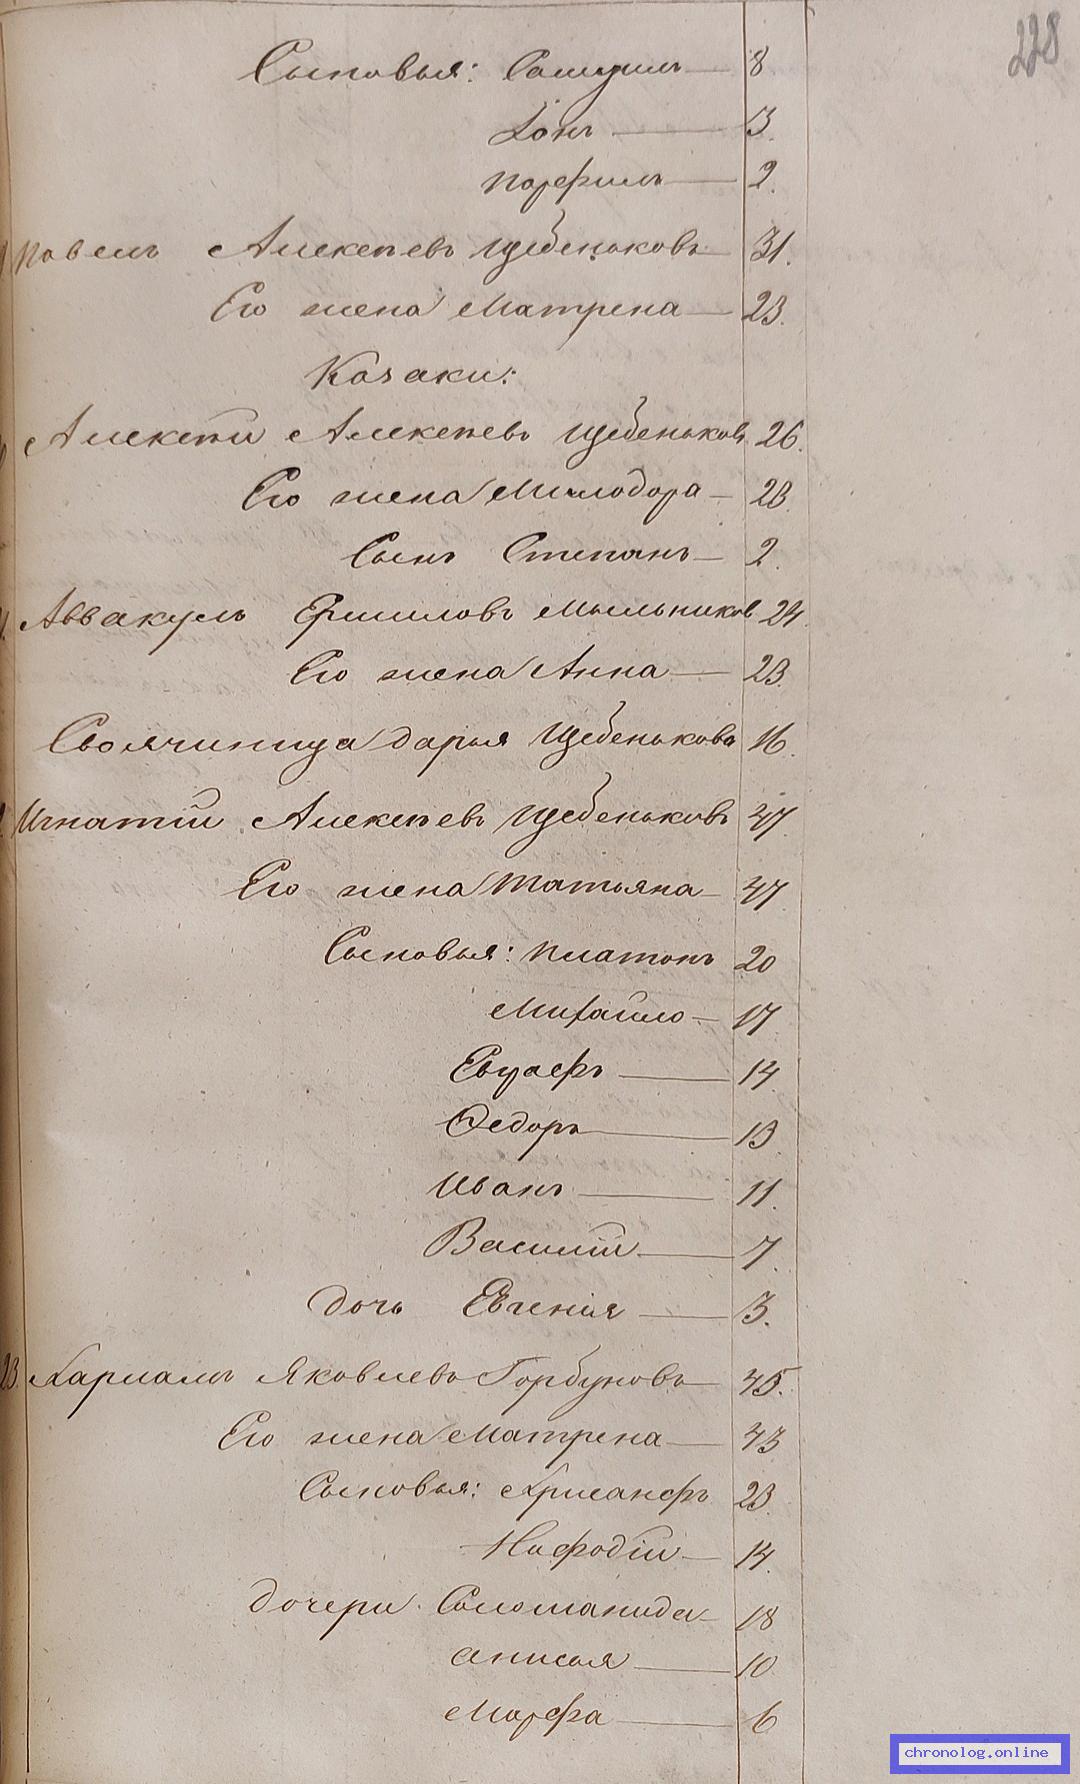 228
Сыновья: Самуилъ 8
Іонъ 3.
Парфилъ 2.
Павелъ Алексѣевъ Щебеньковъ 31.
Его жена Матрена 23.
Козаки:
Алексѣй Алексѣевъ Щебеньковъ 26.
Его жена Милодора 23.
Сынъ Степанъ 2.
Аввакумъ Ермиловъ Мыльников 24.
Его жена Анна 23.
Своячиница Дарья Щебенькова 16.
Игнатій Алексѣевъ Щебеньковъ 47.
Его жена Татьяна 47.
Сыновья: Платонъ 20
Михайло 17
Евграфъ 14
Федоръ 13
Иванъ 11.
Василій 7.
дочь Евгенія 3.
23. Харлампъ Яковлевъ Горбуновъ 45.
Его жена Матрена 43
Сыновья: Хрисанфъ 23.
Нафодій 14.
дочери Соломанида 18
анисья 10
Марфа 6
chronolog.online